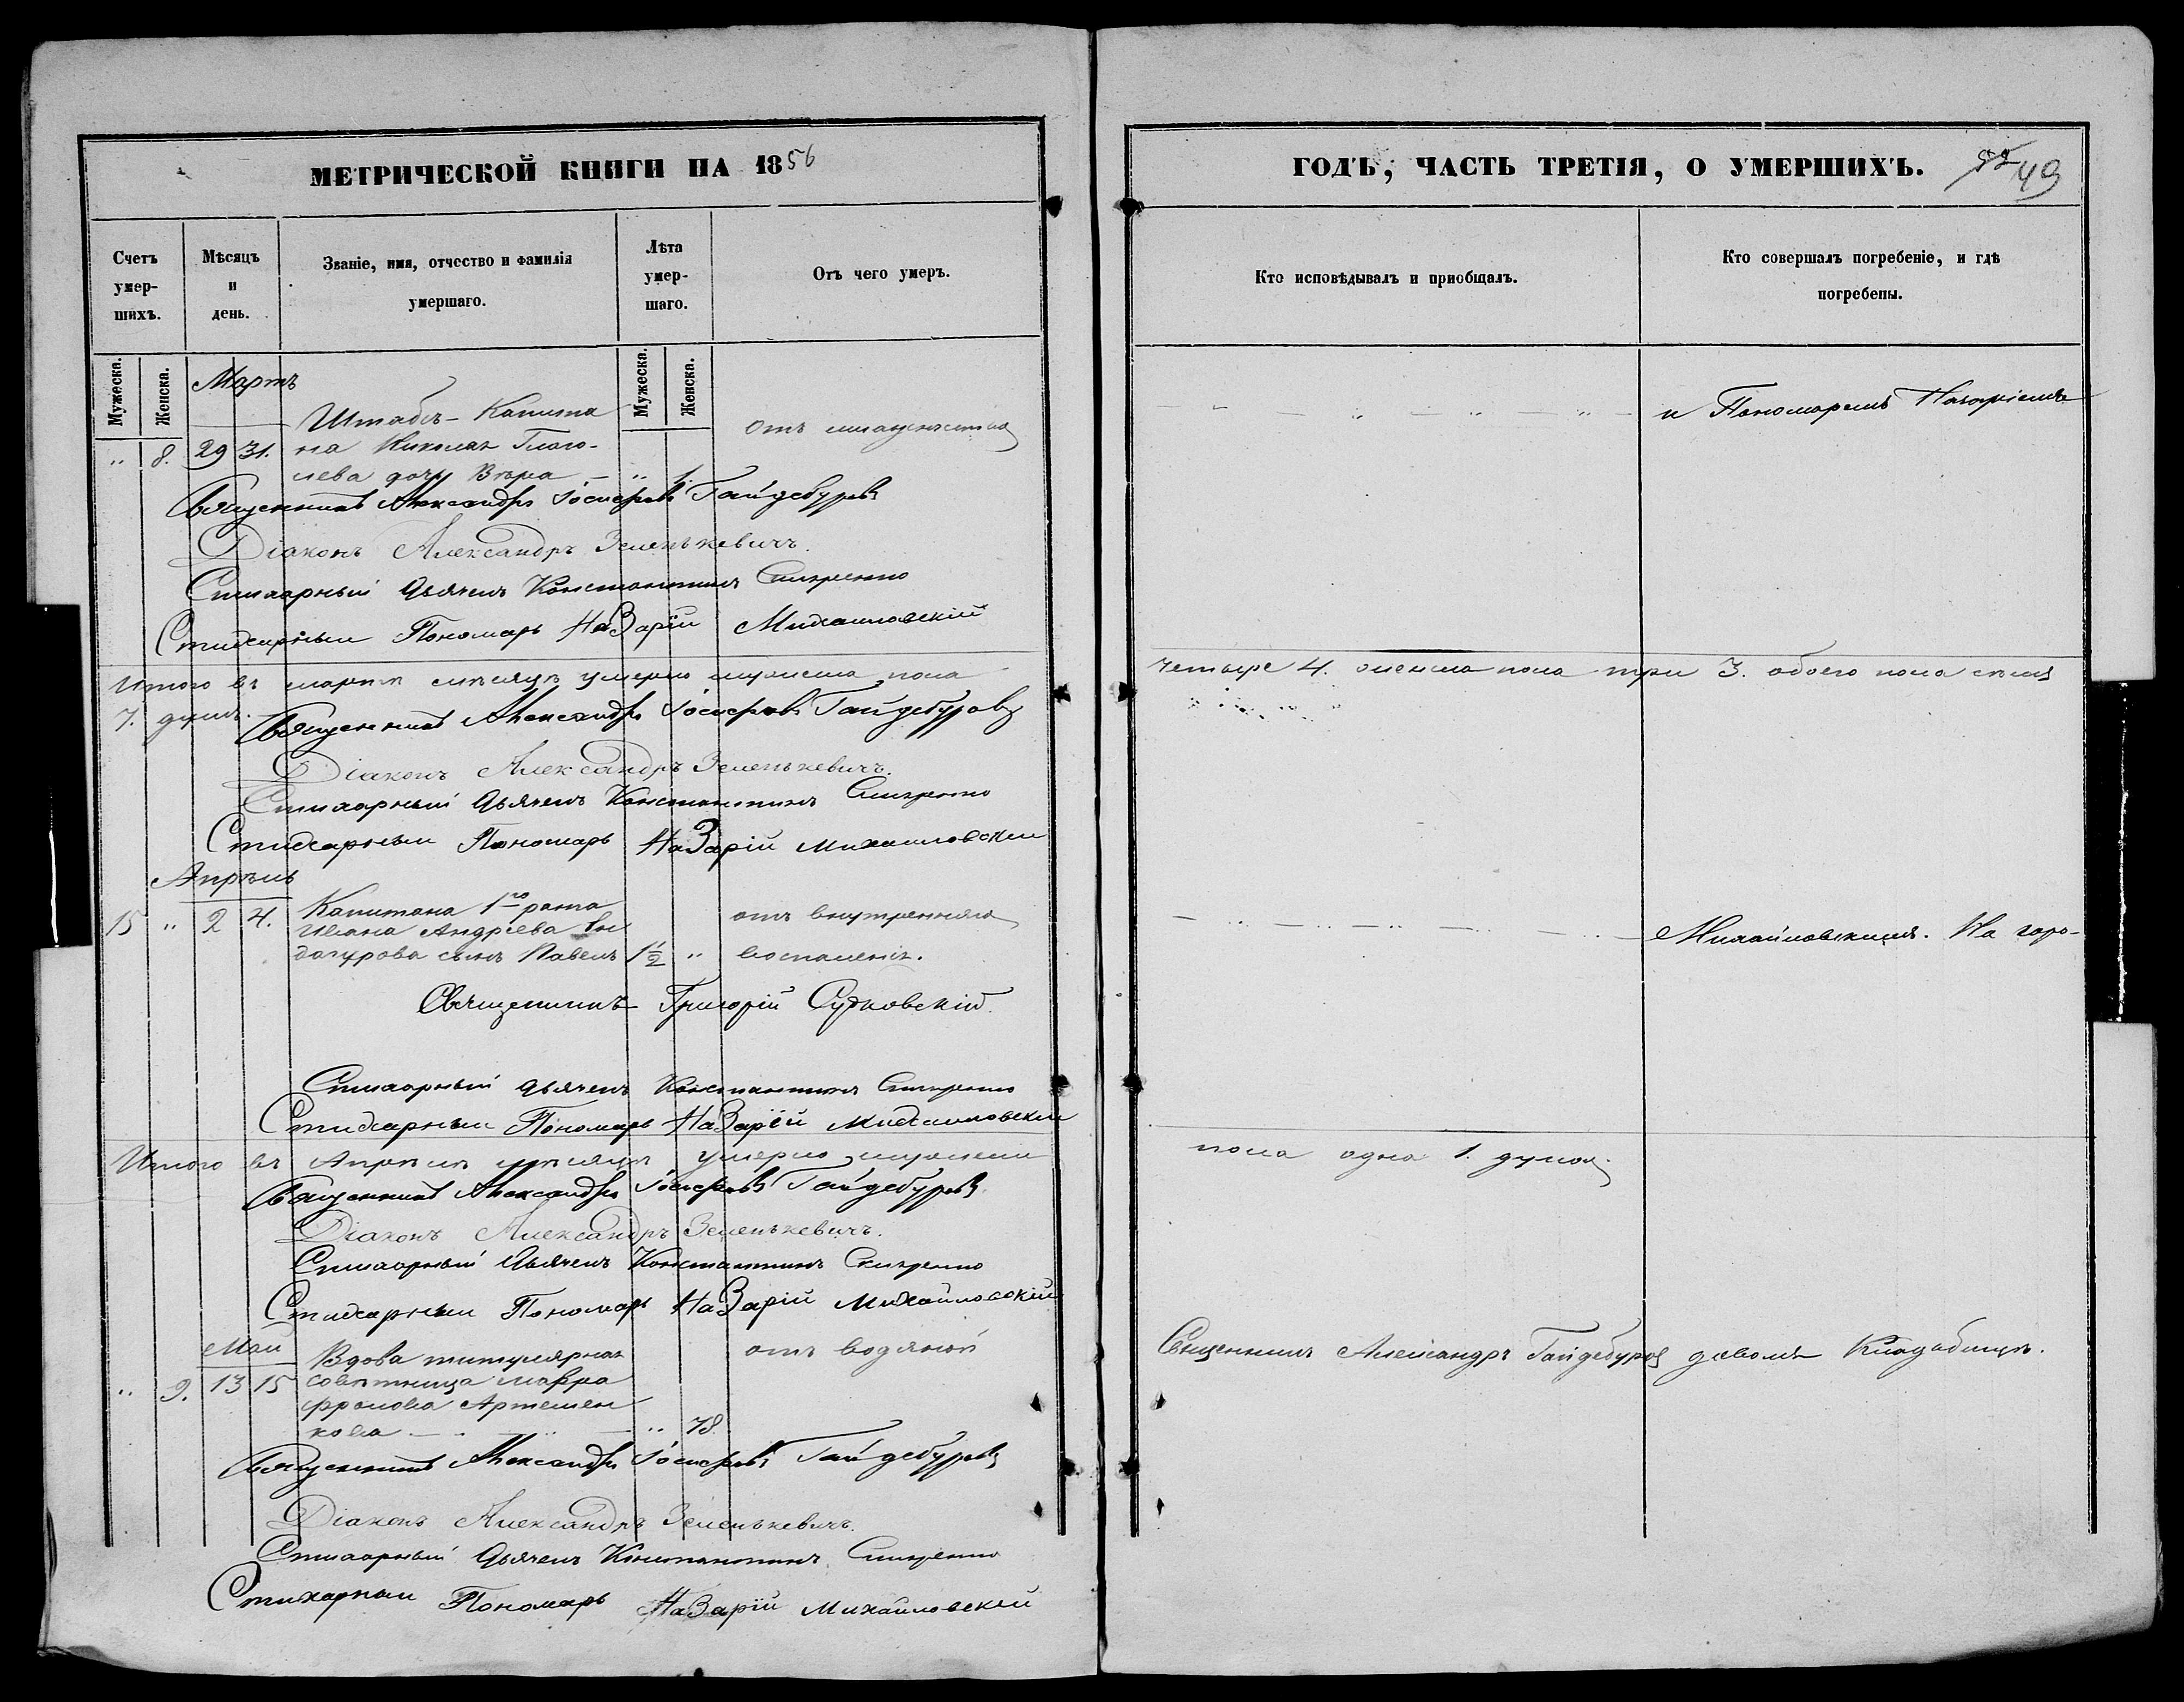 МЕТРИЧЕСКОЙ КНИГИ НА 1856
Счетъ умер-шихъ.
Мѣсяцъ и день.
Званіе, имя, отчество и фамилія умершаго.
Лѣта умер-шаго.
Отъ чего умеръ.
Мужеска.
Женска.
Мужеска.
Женска.
Мартъ
Штабсъ-Капита
" 8. 29 31. на Николая Глаго-
лева дочь Вѣра — " 1.
отъ младенчества
Священникъ Александръ Іосифовъ Гайдебуровъ
Діаконъ Александръ Зеленькевичъ.
Стихарный Дьячекъ Константинъ
Стихарный Пономарь Назарій Михайловскій
Итого въ мартѣ мѣсяцѣ умерло мужеска пола
7. душъ.
Священникъ Александръ Іосифовъ Гайдебуровъ
Діаконъ Александръ Зеленькевичъ.
Стихарный Дьячекъ Константинъ
Стихарный Пономарь Назарій Михайловскій
Апрѣль
Капитана 1го ранга
15 " 2 4. Ивана Андреева
сынъ Павелъ 1½ "
отъ внутренняго
воспаленія.
Священникъ Григорій Судковскій.
Стихарный Дьячекъ Константинъ
Стихарный Пономарь Назарій Михайловскій
Итого въ Апрѣлѣ мѣсяцѣ умерло мужеска
Священникъ Александръ Іосифовъ Гайдебуровъ
Діаконъ Александръ Зеленькевичъ.
Стихарный Дьячекъ Константинъ
Стихарный Пономарь Назарій Михайловскій
Май
Вдова титулярная
" 9. 13 15 совѣтница Марфа
фролова Артемен
кова — " 78.
отъ водяной
Священникъ Александръ Іосифовъ Гайдебуровъ
Діаконъ Александръ Зеленькевичъ.
Стихарный Дьячекъ Константинъ
Стихарный Пономарь Назарій Михайловскій
ГОДЪ, ЧАСТЬ ТРЕТІЯ, О УМЕРШИХЪ.
49
Кто исповѣдывалъ и пріобщалъ.
Кто совершалъ погребеніе, и гдѣ погребены.
и Пономаремъ Назаріемъ
четыре 4. женска пола три 3. обоего пола семь
Михайловскимъ. На горо-
пола одна 1. душа.
Священникъ Александръ Гайдебуровъ
дсвомъ Кладбищѣ.